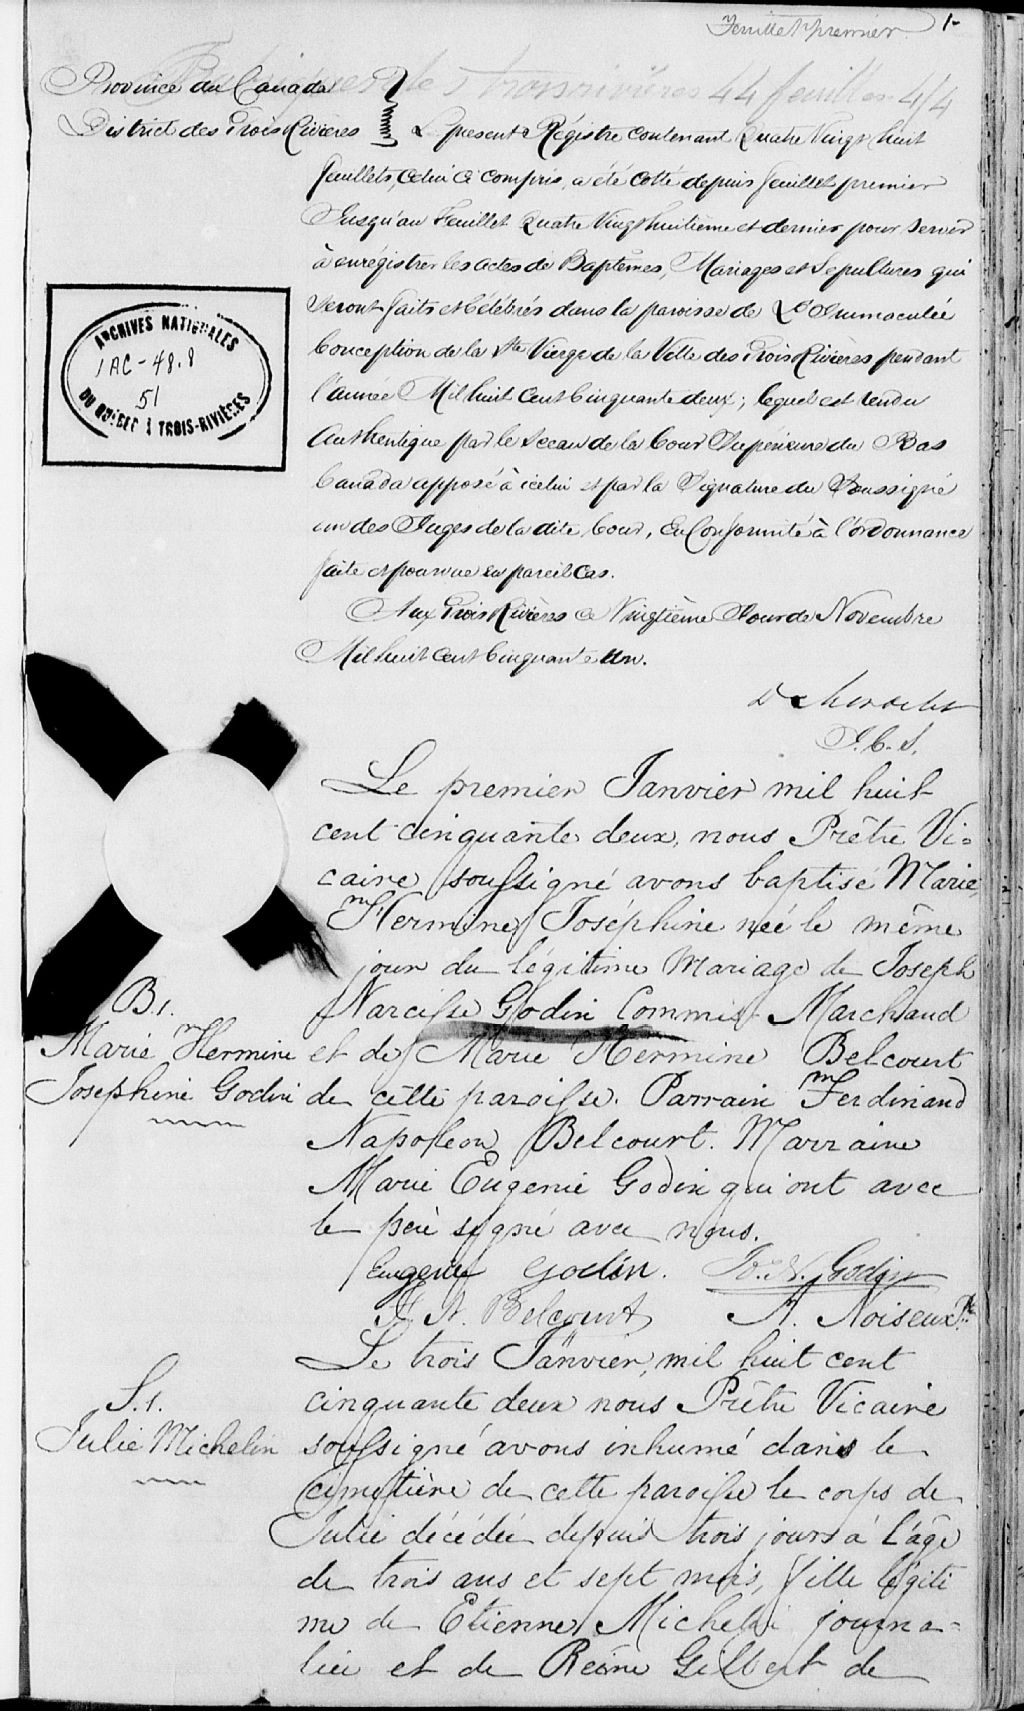 Feuillet premier 1-
Province du Canada
District des Trois Rivières
Le présent Régistre contenant Quatre Vingt huit
feuillets, celui ci compris, a été cotté depuis feuillet premier
Jusqu'au Feuillet Quatre Vingt huitième et dernier pour servir
à enrégistrer les actes de Baptêmes, Mariages et Sepultures qui
seront faits et Célébrés dans la paroisse de L'Immaculée
Conception de la Ste Vierge de la Ville des Trois Rivières pendant
l'année Mil huit Cent Cinquante deux; lequel est rendu
Authentique par le Sceau de la Cour Supérieure du Bas
Canada apposé à icelui et par la Signature du Soussigné
un des Juges de la dite Cour, en Conformité à l'ordonnance
faite et pourvue en pareil Cas.
Aux Trois Rivières ce Vingtième Jour de Novembre
Mil huit Cent Cinquante Un.
D Mondelet
J.C.S.
ARCHIVES NATIONALES
1AC-48.8
51
DU QUÉBEC À TROIS-RIVIÈRES
Le premier Janvier mil huit
cent cinquante deux, nous Prêtre Vi=
caire soussigné avons baptisé Marie
Hermine Joséphine née le même
jour du légitime Mariage de Joseph
Narcisse Godin Commis Marchand
et de Marie Hermine Belcourt
de cette paroisse. Parrain Ferdinand
Napoléon Belcourt. Marraine
Marie Eugenie Godin qui ont avec
le père signé avec nous.
Eugenie Godin. Jo. N. Godin
F. N. Belcourt A. Noiseux Ptre
B1.
Marie Hermine
Josephine Godin
Le trois Janvier, mil huit cent
cinquante deux nous Prêtre Vicaire
soussigné avons inhumé dans le
Cimetière de cette paroisse le corps de
Julie décédée depuis trois jours à l'âge
de trois ans et sept mois, fille légiti
me de Etienne Michelin journa-
lier et de Reine Gilbert de
S.1.
Julie Michelin